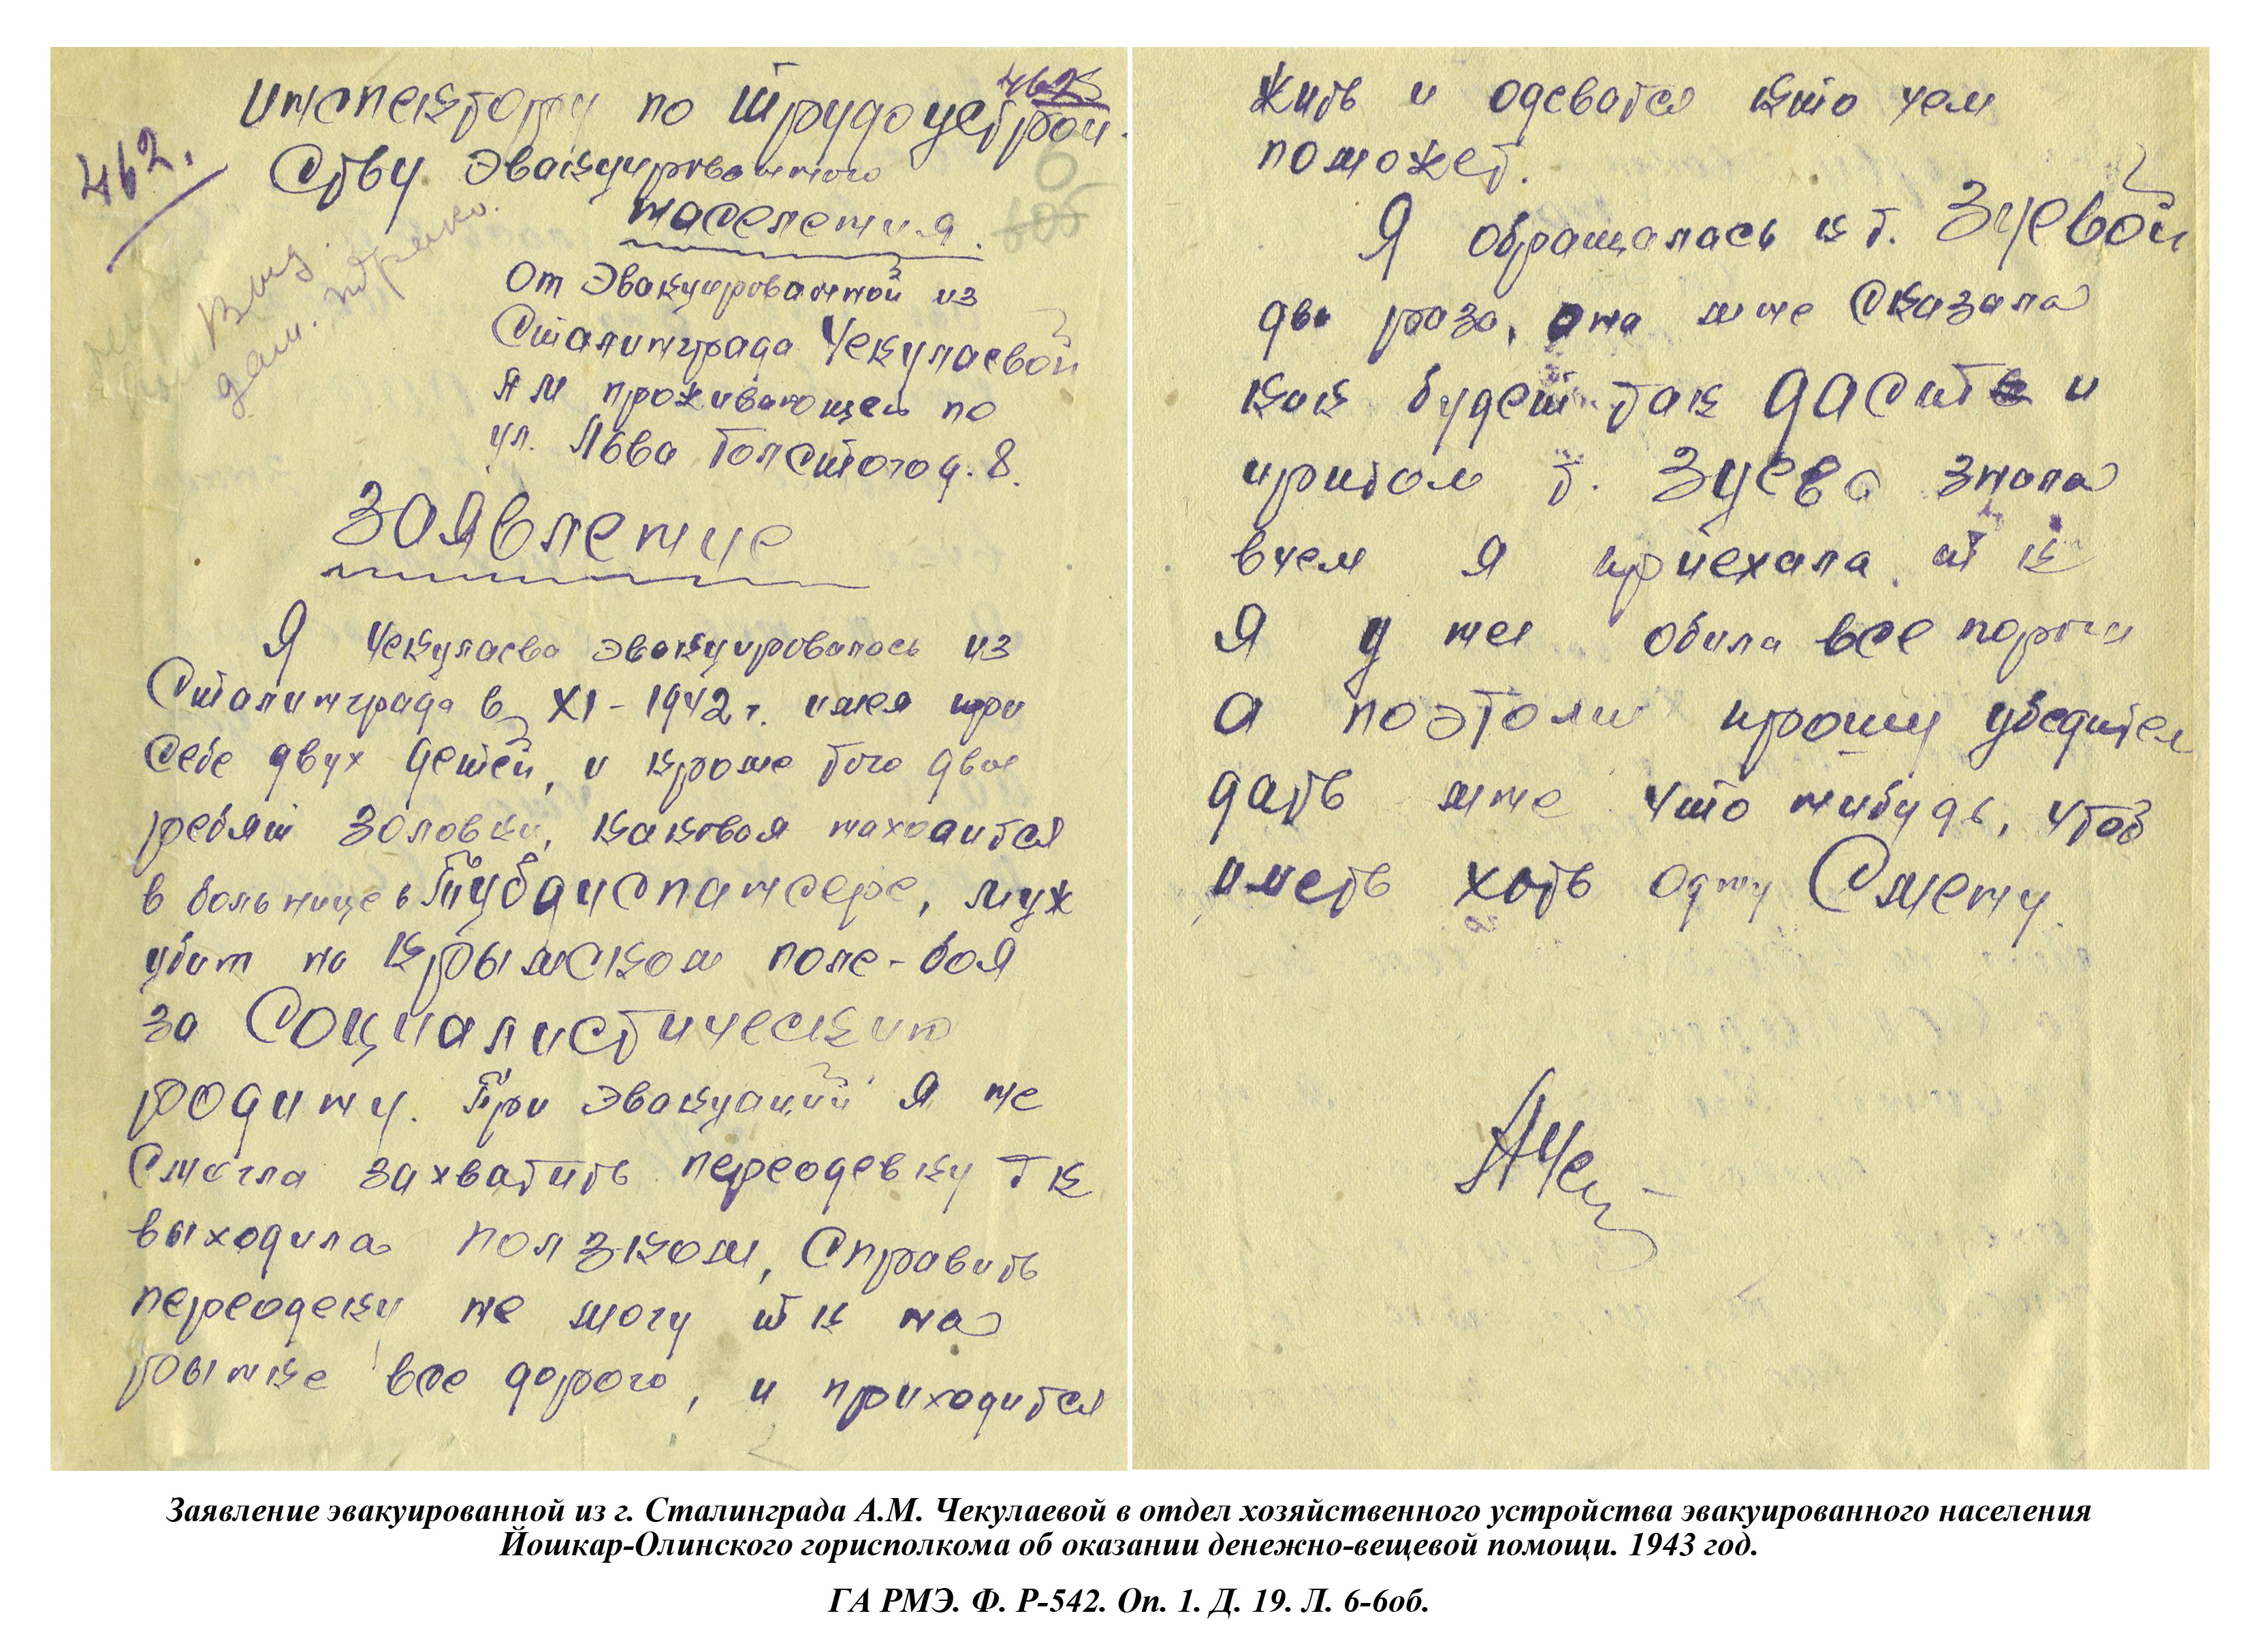 462
инспектору по трудоустрой-
462.
ству эвакуированного
населения.
6
От Эвакуированной из
Сталинграда Чекулаевой
АМ проживающей по
ул. Льва Толстого д. 8.
Заявление
Я Чекулаева эвакуировалась из
Сталинграда в XI-1942 г. имея при
себе двух детей, и кроме того двое
ребят золовки, каковая находится
в больнице в Тубдиспансере, муж
убит на Крымском поле-боя
за Социалистическую
родину. При эвакуаций я не
смогла захватить переодевку т к
выходила ползком, Справить
переодеку не могу т к на
рынке все дорого, и приходится
жить и одеватся кто чем
поможет.
Я обращалась к т. Зуевой
два раза, она мне сказала
как будет так даст и
притом т. Зуева знала
вчем я приехала т к
я у нея обила все пороги
а поэтому прошу убедител
дать мне что нибудь, чтоб
иметь хоть одну Смену.
АЧе
Заявление эвакуированной из г. Сталинграда А.М. Чекулаевой в отдел хозяйственного устройства эвакуированного населения
Йошкар-Олинского горисполкома об оказании денежно-вещевой помощи. 1943 год.
ГА РМЭ. Ф. Р-542. Оп. 1. Д. 19. Л. 6-6об.